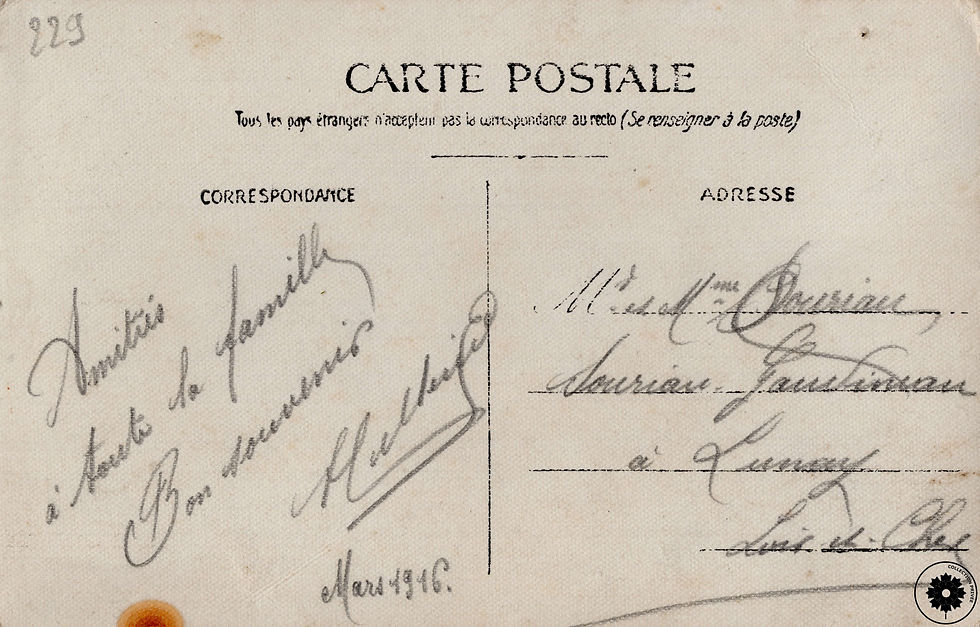 229
CARTE POSTALE
Tous les pays étrangers n'acceptent pas la correspondance au recto (Se renseigner à la poste)
CORRESPONDANCE
Amitiés
à toute la famille
Bon souvenir
Mars 1916.
ADRESSE
Mr et Mme
à Lunay
Loir et Cher
COLLECTION PRIVÉE